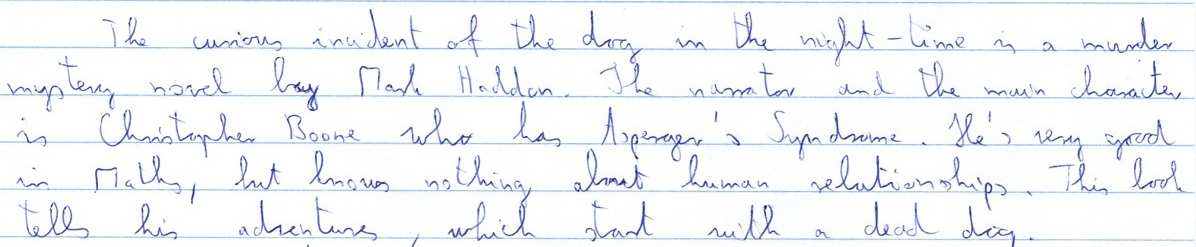 The curious incident of the dog in the night-time is a murder
mystery novel by Mark Haddon. The narrator and the main character
is Christopher Boone who has Asperger's Syndrome. He's very good
in Maths, but knows nothing about human relationships. This book
tells his adventures, which start with a dead dog.